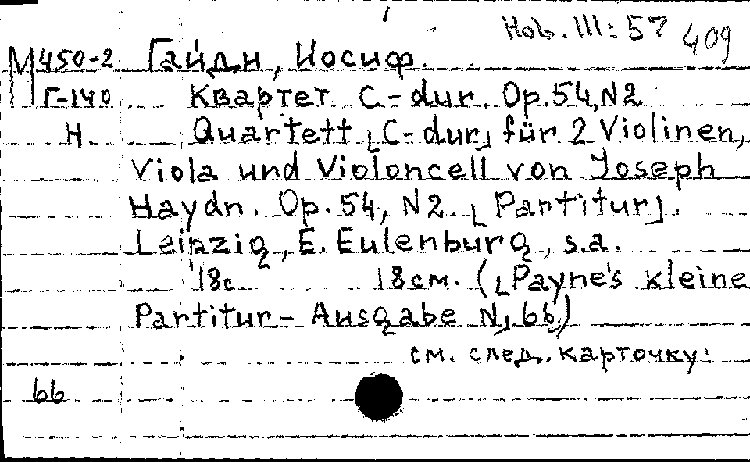 Hob. III: 57 409
М450-2 Гайдн, Иосиф.
Г-140 Квартет C-dur. Op.54, N2
Н Quartett [C-dur] für 2 Violinen,
Viola und Violoncell von Joseph
Haydn. Op.54, N2. [Partitur].
Leipzig, E. Eulenburg, s.a.
18с 18см. ([Payne's kleine
Partitur-Ausgabe N] 66)
см. след. карточку.
66